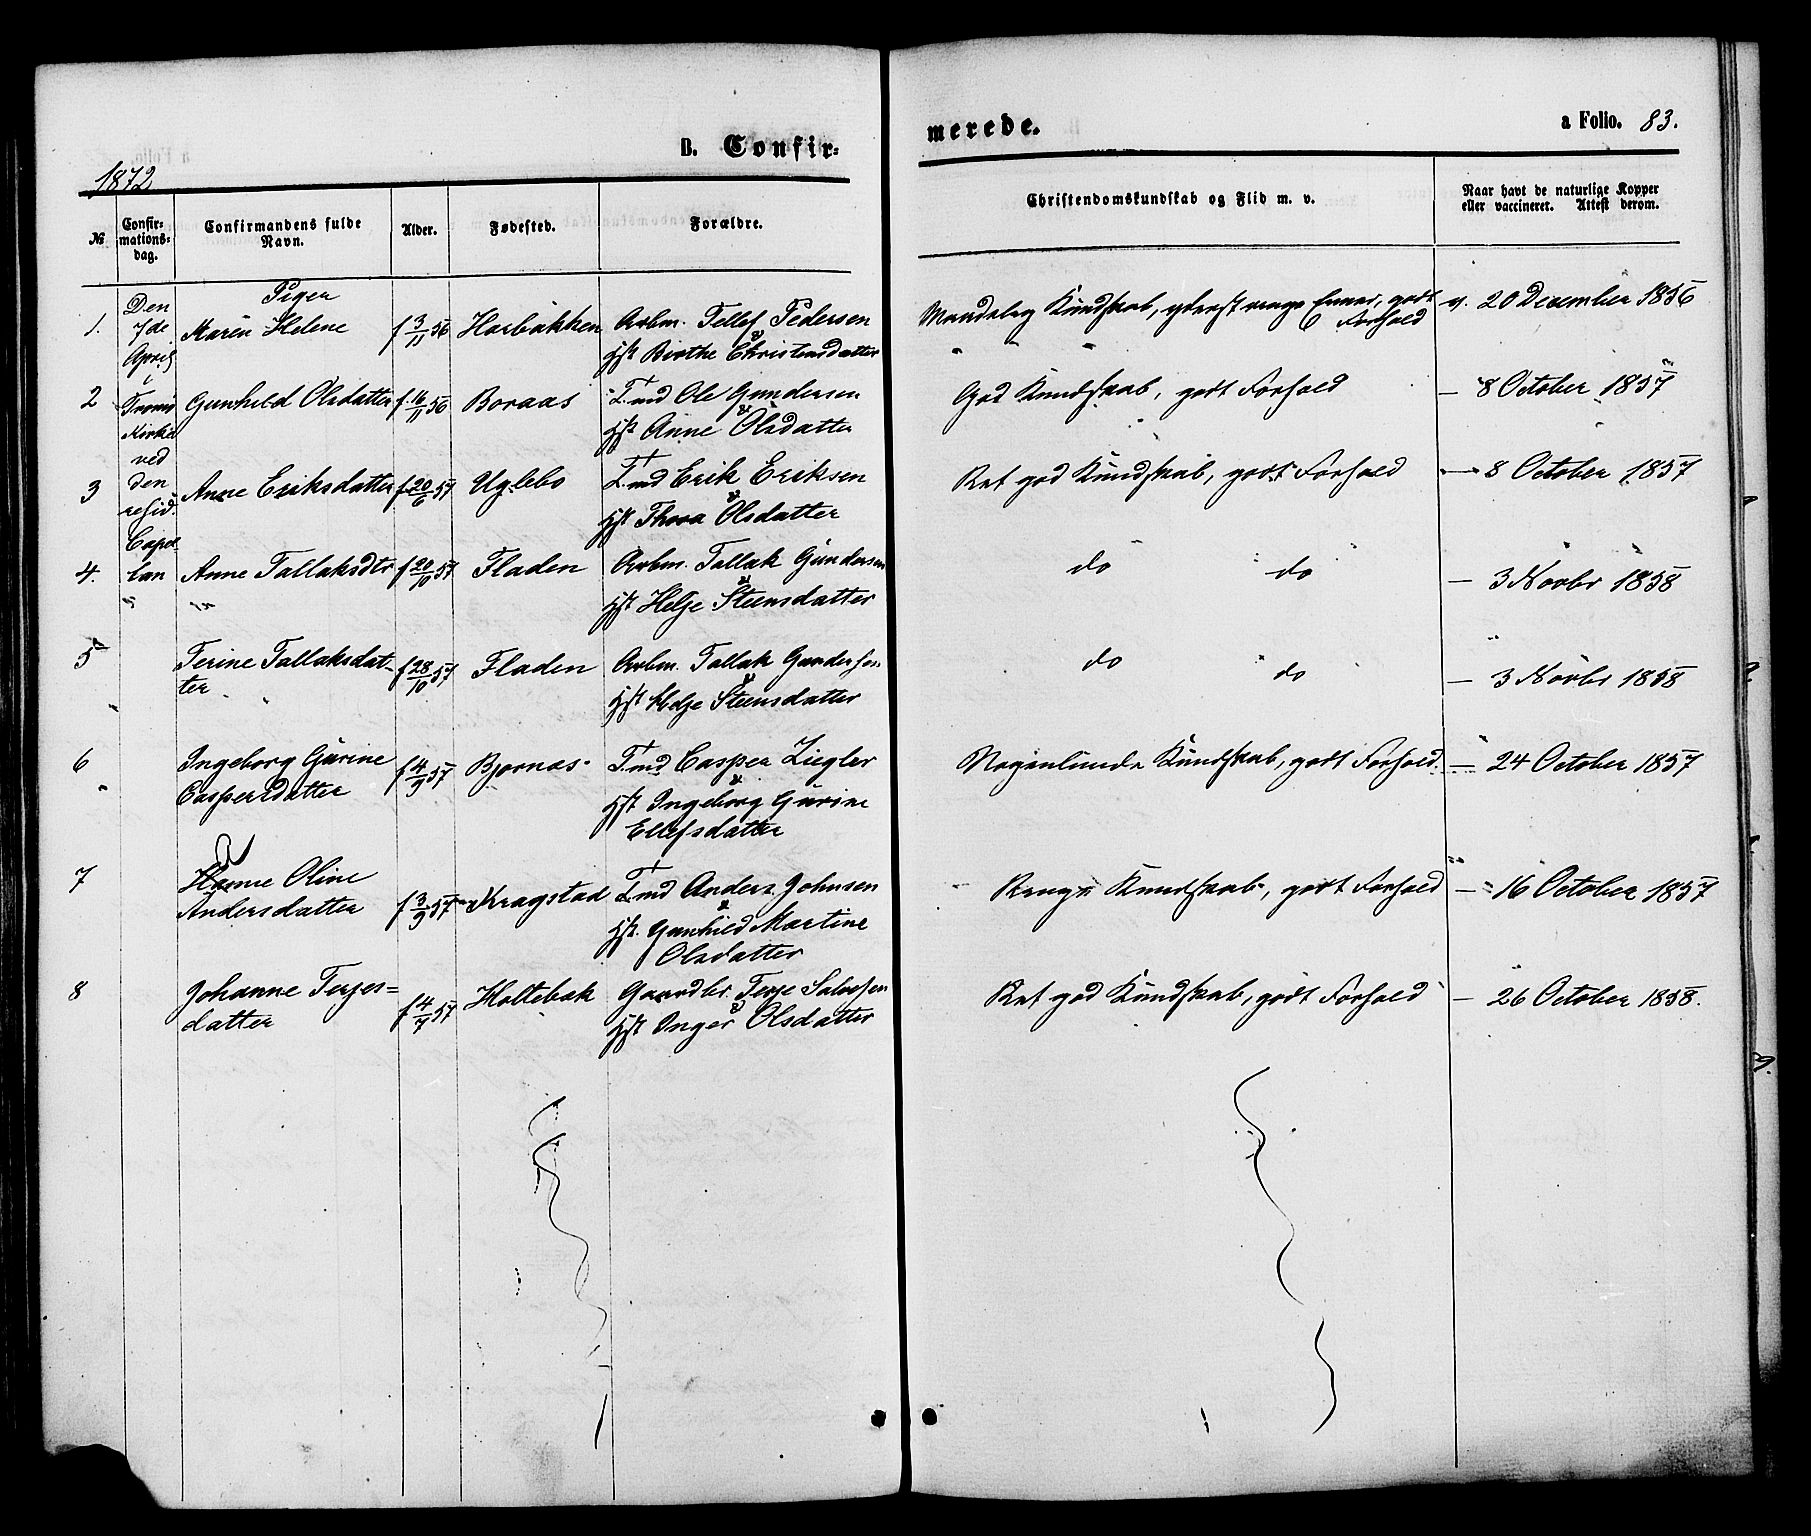 B. Confir=
merede.
a Folio. 83.
1872
№
Confir-
mations-
dag.
Confirmandens fulde
Navn.
Alder.
Fødested.
Forældre.
Christendomskundskab og Flid m. v.
Naar havt de naturlige Kopper
eller vaccineret. Attest derom.
Den
7de
April
i
Tromø
Kirke
ved
den
resid.
Capel
lan
Piger
1. Maren Helene f 3/11 56 Harbakken Arbm. Tellef Pedersen
&
Hst Birthe Christensdatter
Maadelig Kundskab, yderst ringe Evner, godt
Forhold
v. 20 December 1856
2 Gunhild Olsdatter f. 16/11 56 Boraas T.md Ole Gundersen
&
Hst Anne Olsdatter
God Kundskab, godt Forhold
— 8 October 1857
3 Anne Eriksdatter f 20/6 57 Uglebo T.md Erik Eriksen
&
Hst Thora Olsdatter
Ret god Kundskab, godt Forhold
— 8 October 1857
4. Anne Tallaksdtr f 20/10 57 Fladen Arbm. Tallak Gundersen
&
Hst Helje Steensdatter
do do
— 3 Novbr 1858
5 Terine Tallaksdat-
ter f 28/10 57 Fladen Arbm. Tallak Gundersen
&
Hst Helje Steensdatter
do do
— 3 Novbr 1858
6 Ingeborg Gurine
Caspersdatter f 4/9 57 Bjornæs T.md Casper Ziegler
&
Hst Ingeborg Gurine
Ellefsdatter
Nogenlunde Kundskab, godt Forhold.
— 24 October 1857
7 Hanne Oline
Andersdatter f 3/9 57 Kragstad T.md Anders Johnsen
&
Hst. Gunhild Martine
Olsdatter
Ringe Kundskab, godt Forhold
— 16 October 1857
8 Johanne Terjes=
datter f 4/7 57 Holtebæk Gaardbr. Terje Salvesen
&
Hst Inger Olsdatter
Ret god Kundskab, godt Forhold
— 26 October 1858.